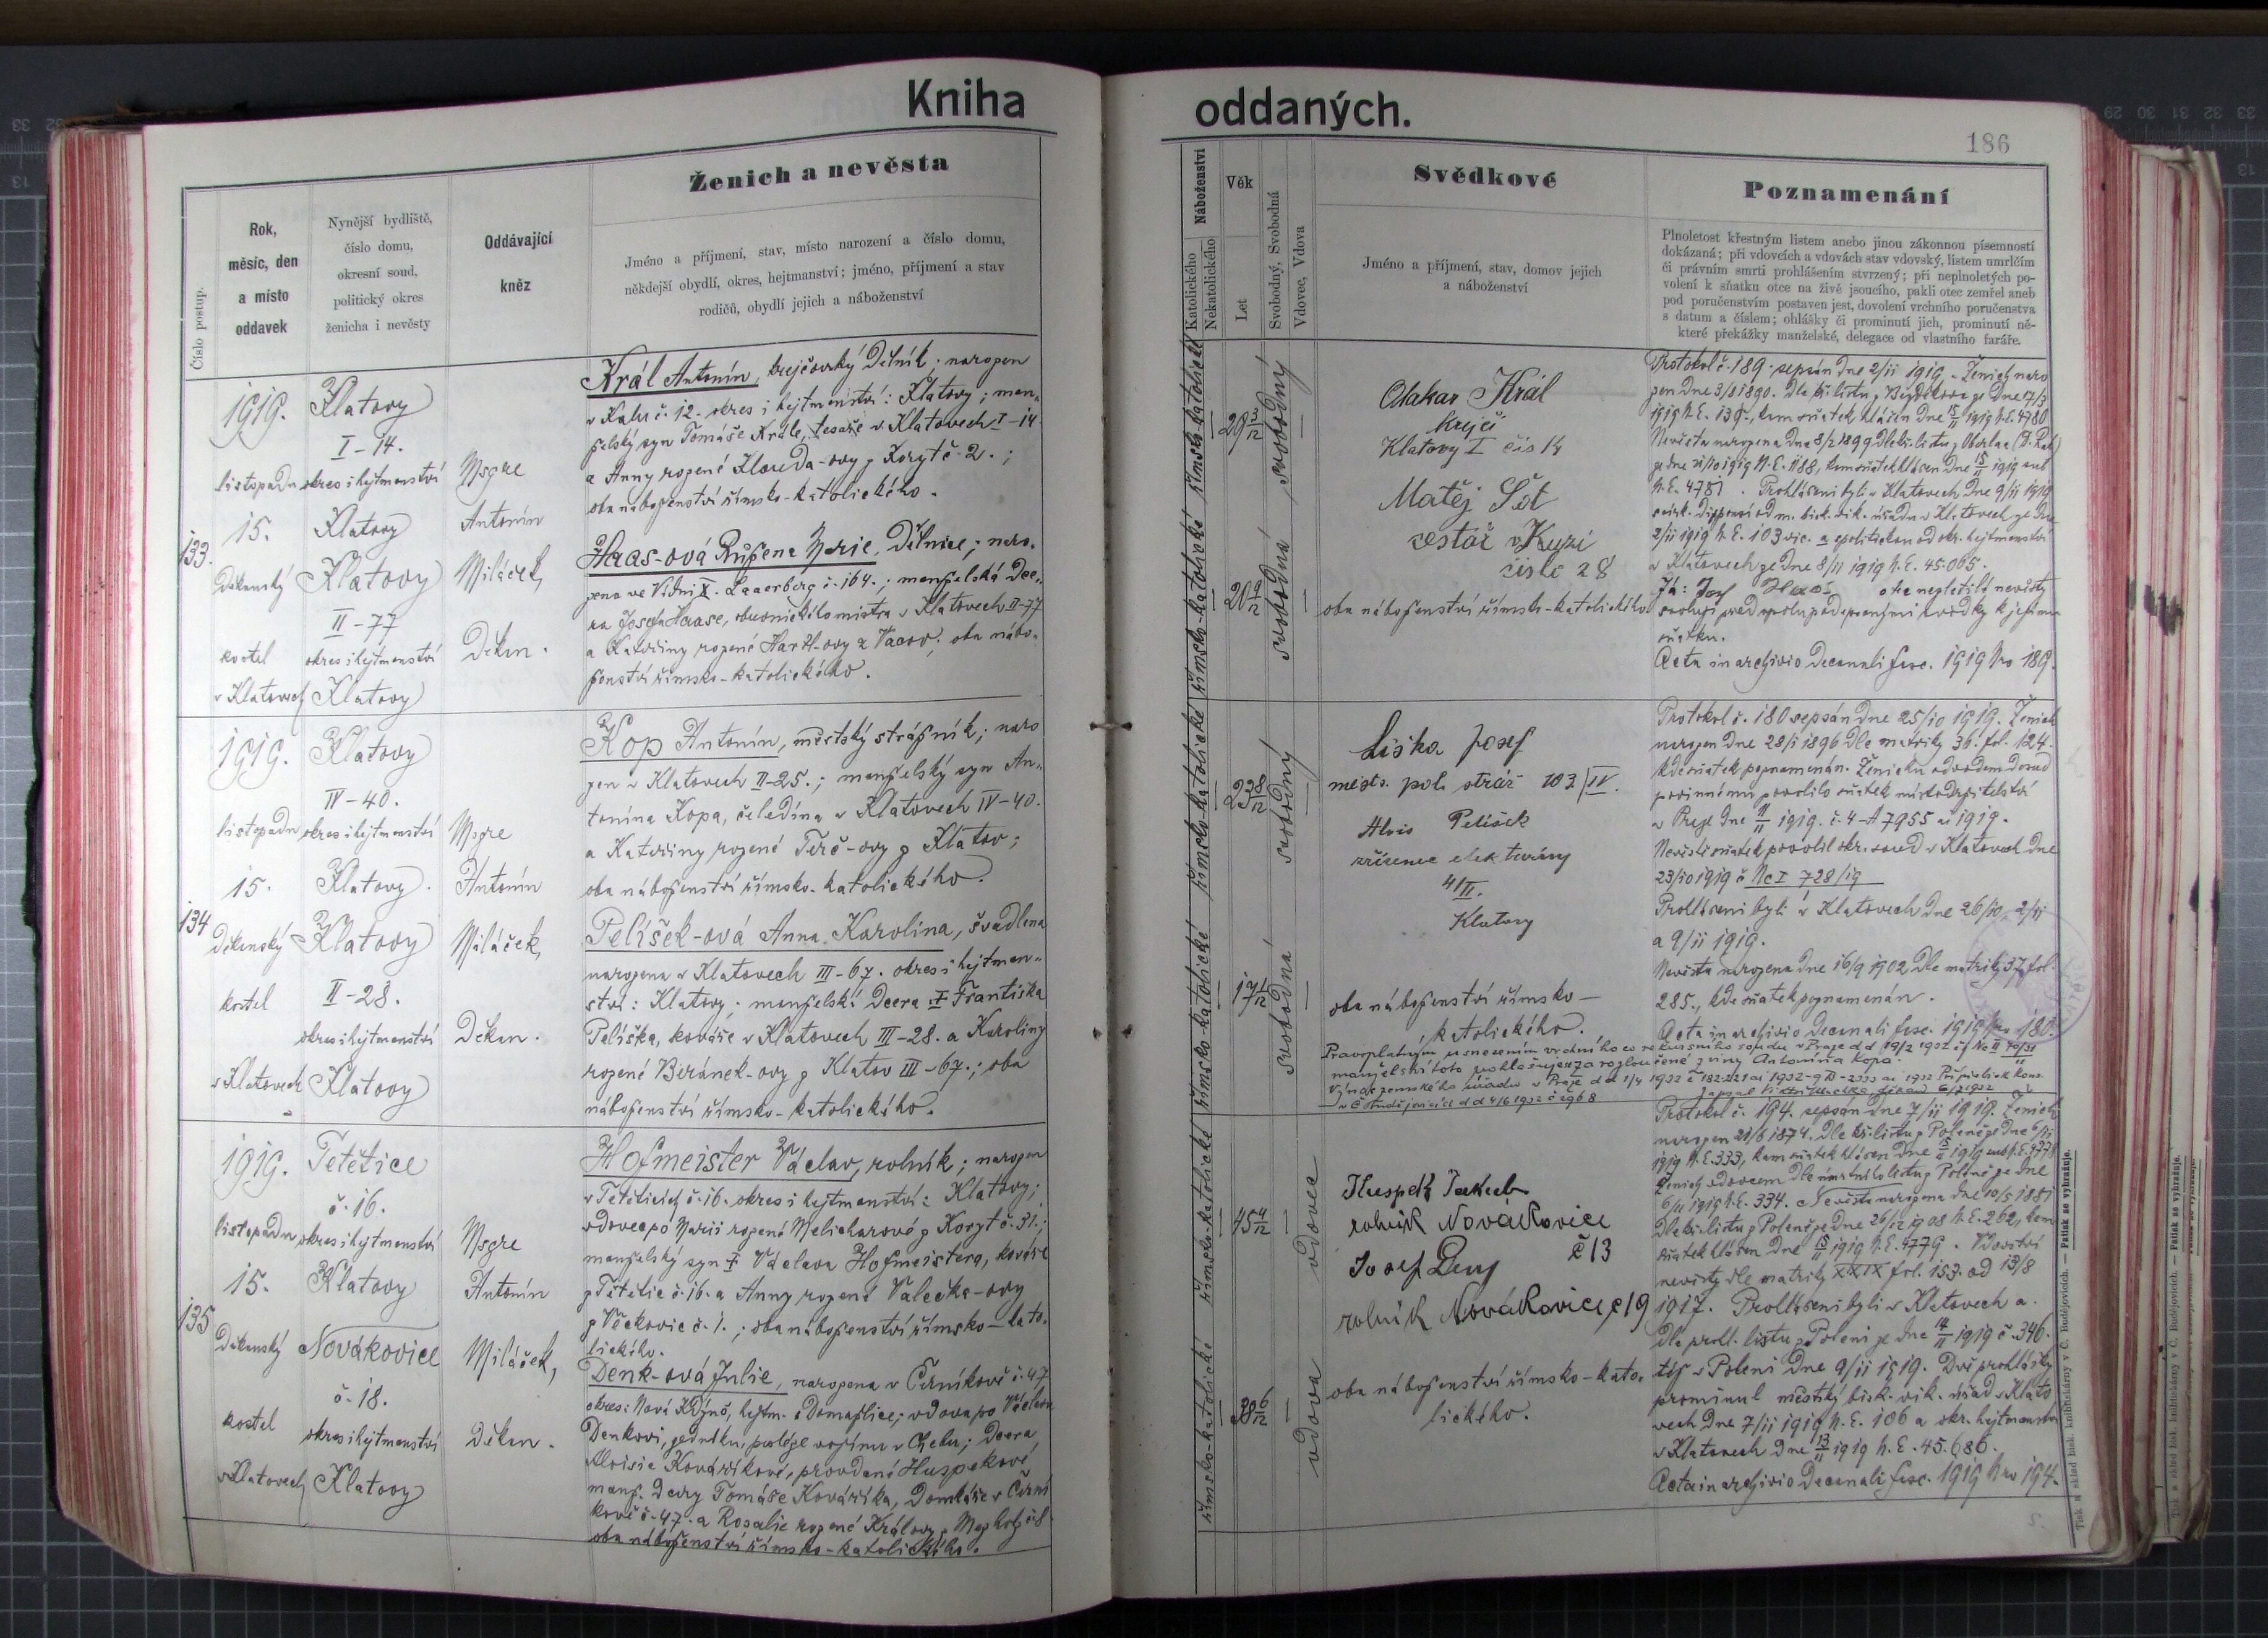 Kniha
oddaných.
186
Číslo postup.
Rok,
měsíc, den
a místo
oddavek
Nynější bydliště,
číslo domu,
okresní soud,
politický okres
ženicha i nevěsty
Oddávající
kněz
Ženich a nevěsta
Jméno a příjmení, stav, místo narození a číslo domu,
někdejší obydlí, okres, hejtmanství; jméno, příjmení a stav
rodičů, obydlí jejich a náboženství
Náboženství
Katolického
Nekatolického
Věk
Let
Svobodný, Svobodná
Vdovec, Vdova
Svědkové
Jméno a příjmení, stav, domov jejich
a náboženství
Poznamenání
Plnoletost křestným listem anebo jinou zákonnou písemností
dokázaná; při vdovcích a vdovách stav vdovský, listem umrlčím
či právním smrti prohlášením stvrzený; při neplnoletých po-
volení k sňatku otce na živě jsoucího, pakli otec zemřel aneb
pod poručenstvím postaven jest, dovolení vrchního poručenstva
s datum a číslem; ohlášky či prominutí jich, prominutí ně-
které překážky manželské, delegace od vlastního faráře.
133.
1919.
listopadu
15.
Děkanský
kostel
v Klatovech
Klatovy
I-14.
okres i hejtmanství
Klatovy
Klatovy
II-77
okres i hejtmanství
Klatovy
Msgre
Antonín
Miláček,
Děkan.
Král Antonín, krejčovský dělník; narozen
v Kalu č. 12. okres i hejtmanství: Klatovy; man-
želský syn Tomáše Krále, tesaře v Klatovech I-14
a Anny rozené Klouda-ovy z Koryt č. 2.;
oba náboženství římsko-katolického.
Haas-ová Růžena Marie, dělnice; naro-
zena ve Vídni X. Laaerberg č. 164.; manželská dce-
ra Josefa Haase, obuvnického mistra v Klatovech II-77
a Kateřiny rozené Hartl-ovy z Vacov; oba nábo-
ženství římsko-katolického.
římsko-katolické
29 3/12
svobodný
římsko-katolické
20 9/12
svobodná
Otakar Král
krejčí
Klatovy I čís 14
Matěj
cestář v
číslo 28
oba náboženství římsko-katolického
Protokol č. 189. sepsán dne 2/11 1919. Ženich naro
zen dne 3/8 1890. Dle kř. listu z Bezděkova ze dne 17/3
1919 N.E. 139., kam sňatek hlášen dne 15/11 1919 N.E. 4780
Nevěsta narozena dne 8/2 1899 dle kř. listu z Oberlaa
ze dne 21/10 1919 N.E. 1188, kam sňatek hlášen dne 15/11 1919 sub
N.E. 4781. Prohlášeni byli v Klatovech dne 9/11 1919
s círk. dispensí od m. bisk. vik. úřadu v Klatovech ze dne
2/11 1919 N.E. 103 vic. a s politickou od okr. hejtmanství
v Klatovech ze dne 8/11 1919 N.E. 45.005.
Já: Josef Haas otec nezletilé nevěsty
svoluji před spolupodepsanými svědky k jejímu
sňatku.
Acta in archivio Decanali fasc. 1919 Nro 189.
134
1919.
listopadu
15.
Děkanský
kostel
v Klatovech
Klatovy
IV-40.
okres i hejtmanství
Klatovy.
Klatovy
II-28.
okres i hejtmanství
Klatovy
Msgre
Antonín
Miláček,
Děkan.
Kop Antonín, městský strážník; naro
zen v Klatovech II-25.; manželský syn An-
tonína Kopa, čeledína v Klatovech IV-40.
a Kateřiny rozené Terč-ovy z Klatov;
oba náboženství římsko-katolického.
Pelíšek-ová Anna Karolína, švadlena
narozena v Klatovech III-67. okres i hejtman-
ství: Klatovy; manželská dcera † Františka
Pelíška, kováře v Klatovech III-28. a Karoliny
rozené Beránek-ovy z Klatov III-67.; oba
náboženství římsko-katolického.
římsko-katolické
23 8/12
svobodný
římsko-katolické
17 1/12
svobodná
Liška Josef
městs. pol. stráž 103/IV.
Alois Pelíšek
zřízenec elektrárny
41/II.
Klatovy
oba náboženství římsko-
katolického.
Protokol č. 180 sepsán dne 25/10 1919. Ženich
narozen dne 28/1 1896 dle matriky 36. fol. 124.
kde sňatek poznamenán. Ženichu odvodem dosud
povinnému povolilo sňatek místodržitelství
v Praze dne 11/11 1919. č. 4-A 7955 ai 1919.
Nevěstě sňatek povolil okr. soud v Klatovech dne
23/10 1919 č Nc I 728/19
Prohlášeni byli v Klatovech dne 26/10, 2/11
a 9/11 1919.
Nevěsta narozena dne 16/9 1902 dle matriky 37 fol.
285., kde sňatek poznamenán.
Acta in archivio Decanali fasc. 1919 Nro 180.
Pravoplatným usnesením vrchního co rekursního soudu v Praze d d 19/2 1932 čj Nc II 70/31
manželství toto prohlašuje se za rozloučené z viny Antonína Kopa.
Výnos zemského úřadu v Praze d d 1/4 1932 č 182.221 ai 1932
135
1919.
listopadu
15.
Děkanský
kostel
v Klatovech
Tetětice
č. 16.
okres i hejtmanství
Klatovy
Novákovice
č. 18.
okres i hejtmanství
Klatovy
Msgre
Antonín
Miláček,
Děkan.
Hofmeister Václav, rolník; narozen
v Tětěticích č. 16. okres i hejtmanství: Klatovy;
vdovec po Marii rozené Melicharové z Koryt č. 31.;
manželský syn † Václava Hofmeistera, kováře
z Tětětic č. 16. a Anny rozené Valečka-ovy
z Věckovic č. 1.; oba náboženství římsko-kato-
lického.
Denk-ová Julie, narozena v Černíkově č. 47
okres: Nová Kdyně, hejtm.: Domažlice; vdova po Václavu
Denkovi, jedníku, posléze vojínu v Chebu; dcera
Aloisie Kováříkové, provdané Huspekové
manž. dcery Tomáše Kováříka, domkáře v Černí
kově č. 47. a Rosalie rozené Královy z Mezholz č. 8
oba náboženství římsko-katolického.
římsko-katolické
45 4/12
vdovec
římsko-katolické
38 6/12
vdova
Huspek Jakub
rolník Novákovice
č 13
Josef
rolník Novákovice č 19
oba náboženství římsko-kato-
lického.
Protokol č. 194. sepsán dne 7/11 1919. Ženich
narozen 21/6 1874. dle kř. listu z Poleně ze dne 6/11
1919 N.E. 333, kam sňatek hlášen dne 15/11 1919 sub N.E. 4778
Ženich vdovcem dle úmrtního listu z Poleně ze dne
6/11 1919 N.E. 334. Nevěsta narozena dne 10/5 1881
dle kř. listu z Poleně ze dne 26/12 1908 N.E. 262, kam
sňatek hlášen dne 15/11 1919 N.E. 4779. Vdovství
nevěsty dle matriky XXIX fol. 153. od 13/8
1917. Prohlášeni byli v Klatovech a.
dle prohl. listu z Poleni ze dne 14/11 1919 č. 346.
též v Poleni dne 9/11 1919. Dvě prohlášky
prominul městský bisk. vik. úřad v Klato
vech dne 7/11 1919 N.E. 106 a okr. hejtmanství
v Klatovech dne 13/11 1919 N.E. 45.686.
Acta in archivio Decanali fasc. 1919 Nro 194.
Tisk a sklad bisk. knihtiskárny v Č. Budějovicích. — Patisk se vyhražuje.